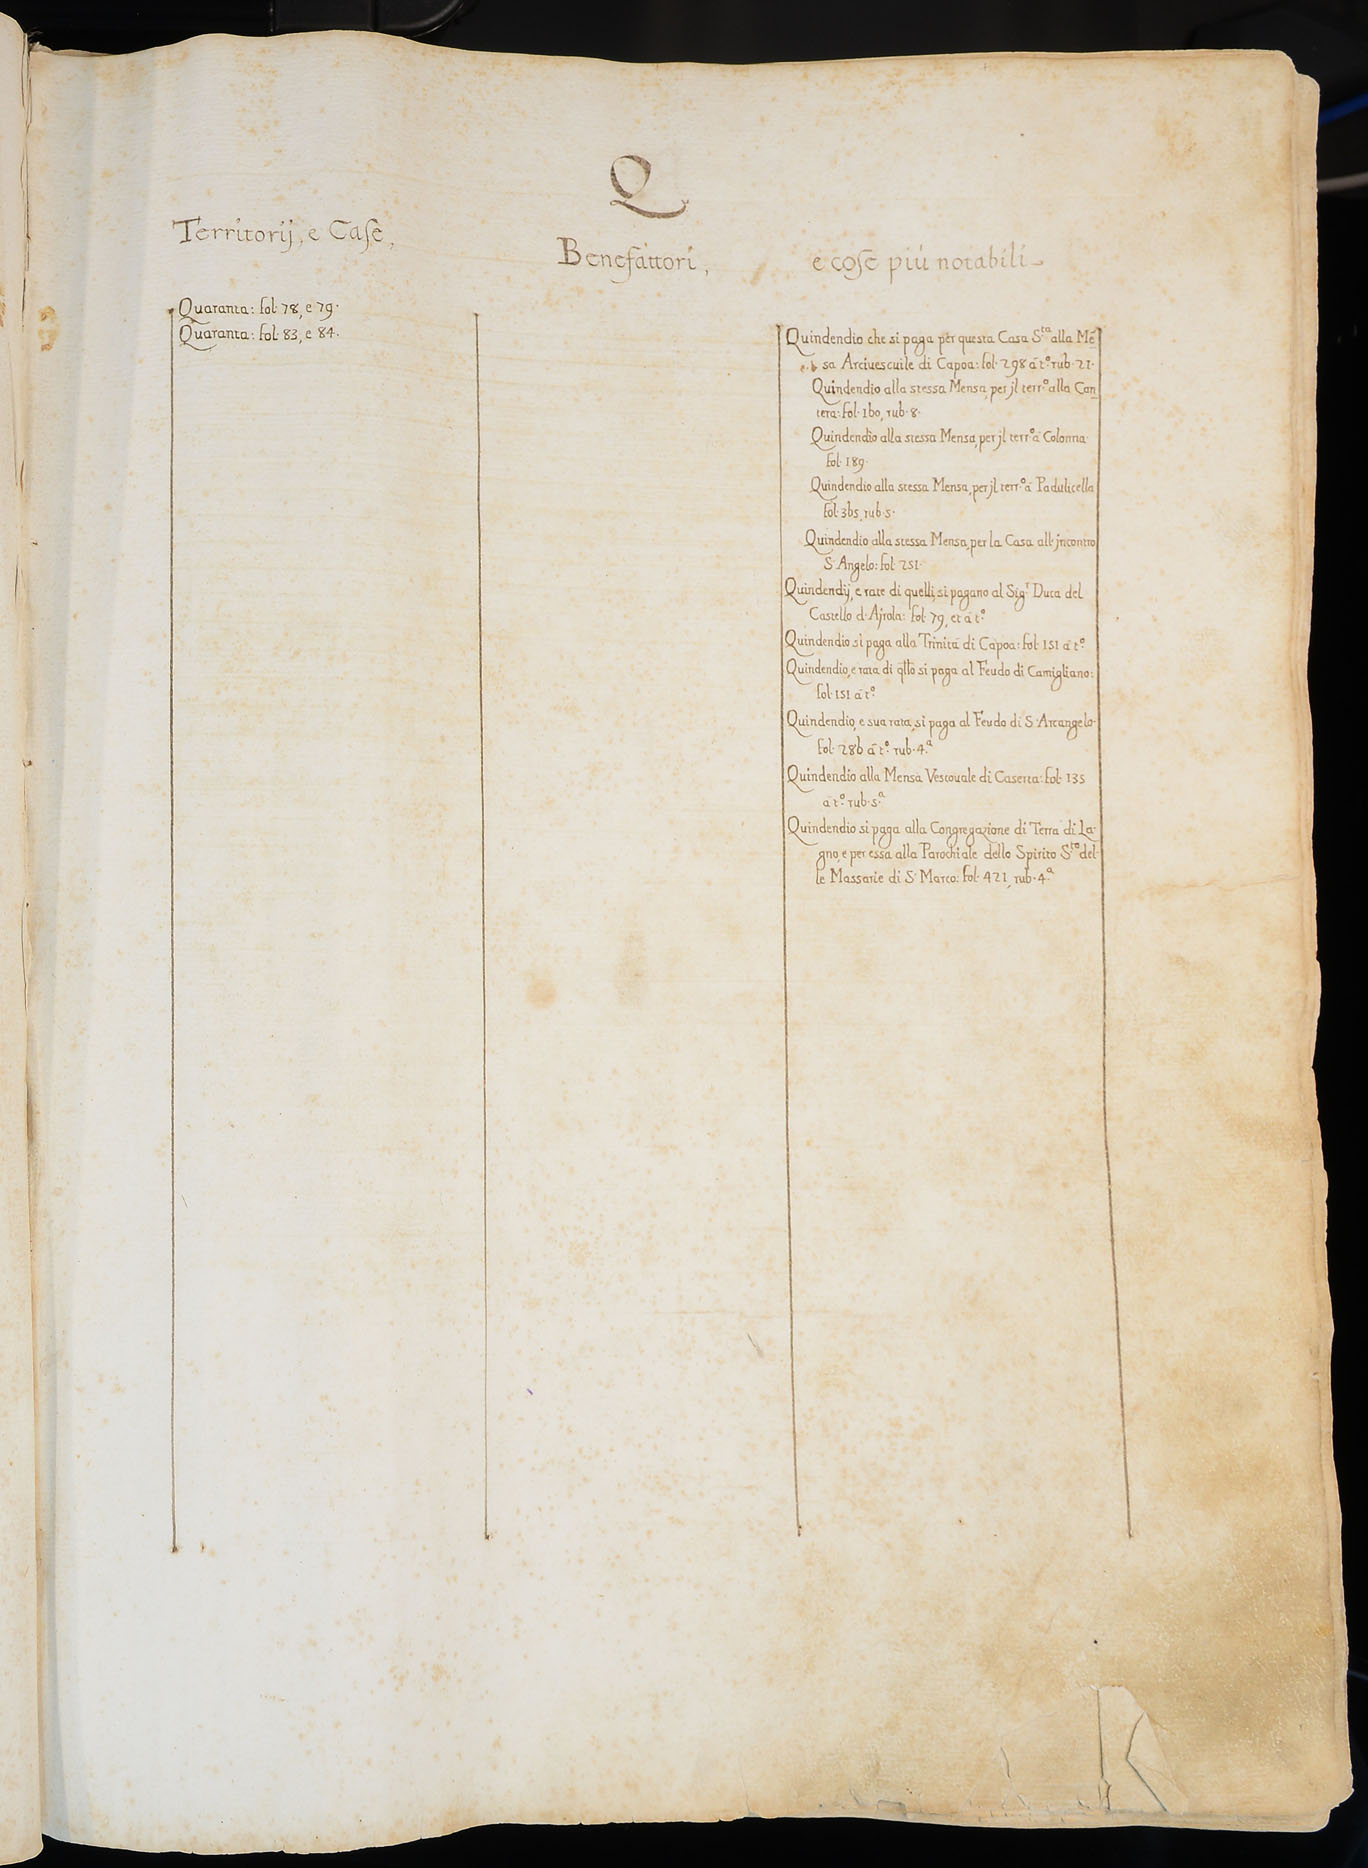 Q
Territorij, e Case,
Benefattori,
e cose più notabili
Quaranta: fol. 78, e 79.
Quaranta: fol. 83, e 84.
Quindendio che si paga per questa Casa S.ta alla Mẽ
sa Arciuescuile di Capoa: fol. 298 à t.o rub. 21.
Quindendio alla stessa Mensa, per jl terr.o alla Can
tera: fol. 160, rub. 8.
Quindendio alla stessa Mensa, per jl terr.o à Colonna.
fol. 189.
Quindendio alla stessa Mensa, per jl terr.o à Padulicella
fol. 365, rub. 5.
Quindendio alla stessa Mensa, per la Casa all'jncontro
S. Angelo: fol. 251.
Quindendij, e rate di quelli, si pagano al Sig.r Duca del
Castello d'Ajrola: fol. 79, et à t.o
Quindendio si paga alla Trinità di Capoa: fol. 151 à t.o
Quindendio, e rata di qllo si paga al Feudo di Camigliano:
fol. 151 à t.o
Quindendio, e sua rata, si paga al Feudo di S. Arcangelo.
fol. 286 à t.o rub. 4.a
Quindendio alla Mensa Vescouale di Caserta: fol. 135
à t.o rub. 5.a
Quindendio si paga alla Congregazione di Terra di La-
gno, e per essa alla Parochiale dello Spirito S.to del-
le Massarie di S. Marco: fol. 421, rub. 4.a